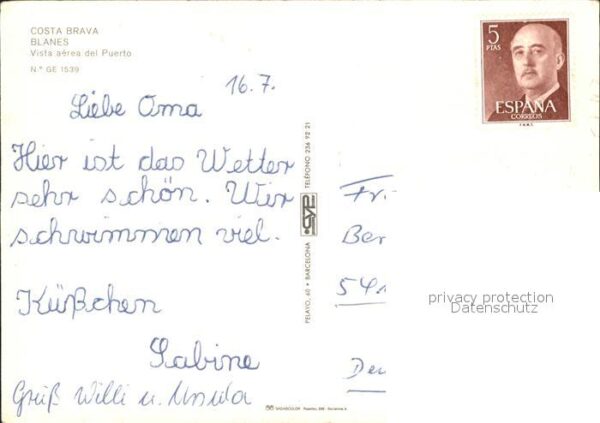 COSTA BRAVA
BLANES
Vista aérea del Puerto
N.° GE 1539
5
PTAS
ESPAÑA
CORREOS
16.7.
Liebe Oma
Hier ist das Wetter
sehr schön. Wir
schwimmen viel.
Küßchen
Sabine
Gruß Willi u. Ursula
PELAYO, 60 • BARCELONA
TELÉFONO 236 92 21
Fri
Ber
54
privacy protection
Datenschutz